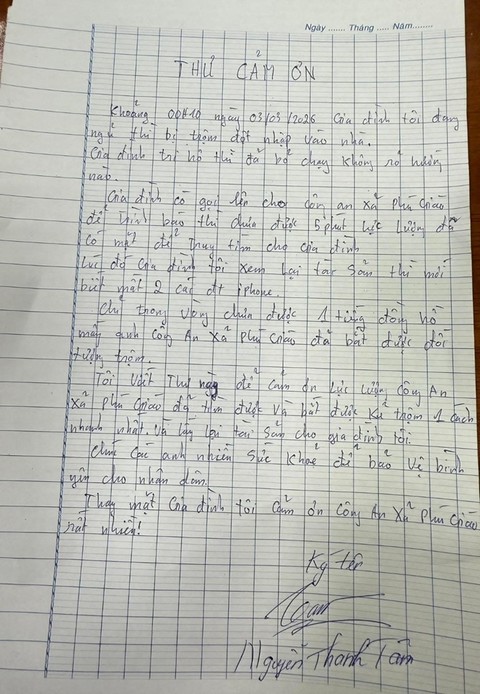 Ngày ....... Tháng ..... Năm........
THƯ CẢM ƠN
Khoảng 00H10 ngày 03/03/2026 Gia đình tôi đang
ngủ thì bị trộm đột nhập vào nhà.
Gia đình tri hô thì đã bỏ chạy không rõ hướng
nào.
Gia đình có gọi lên cho công an xã Phú Giáo
để trình báo thì chưa được 5 phút lực lượng đã
có mặt để truy tìm cho gia đình
Lúc đó Gia đình tôi xem lại tài sản thì mới
biết mất 2 cái đt iphone.
Chỉ trong vòng chưa được 1 tiếng đồng hồ
mấy anh Công An Xã Phú Giáo đã bắt được đối
tượng trộm.
Tôi Viết Thư này để cảm ơn lực lượng Công An
Xã Phú Giáo đã tìm được và bắt được kẻ trộm 1 cách
nhanh nhất. và lấy lại tài sản cho gia đình tôi.
Chúc các anh nhiều sức khoẻ để bảo vệ bình
yên cho nhân dân.
Thay mặt Gia đình tôi cảm ơn Công An Xã Phú Giáo
rất nhiều!
Ký tên
Nguyễn Thanh Tâm